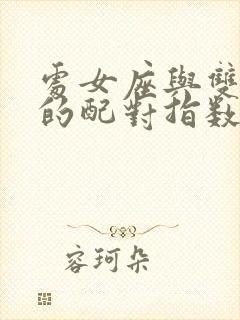 處女座與雙
的配對指數
容珂朵